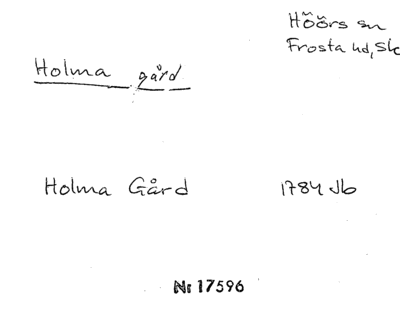 Höörs sn
Frosta hd, Sk
Holma gård
Holma Gård 1784 Jb
Nr 17596